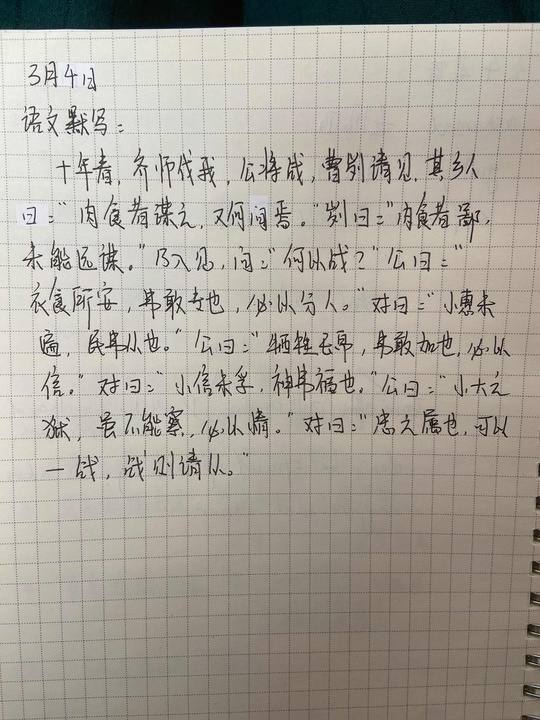 3月4日
语文默写：
十年春，齐师伐我，公将战，曹刿请见，其乡人
曰："肉食者谋之，又何间焉。"刿曰："肉食者鄙，
未能远谋。"乃入见，问："何以战？"公曰："
衣食所安，弗敢专也，必以分人。"对曰："小惠未
遍，民弗从也。"公曰："牺牲玉帛，弗敢加也，必以
信。"对曰："小信未孚，神弗福也。"公曰："小大之
狱，虽不能察，必以情。"对曰："忠之属也，可以
一战，战则请从。"